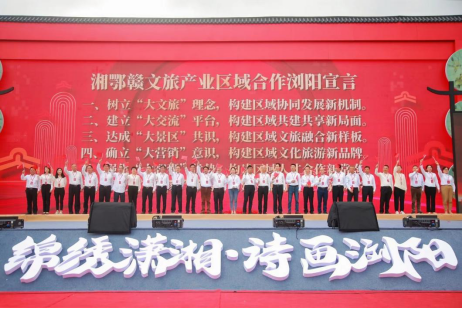 湘鄂赣文旅产业区域合作浏阳宣言
一、树立“大文旅”理念，构建区域协同发展新机制。
二、建立“大交流”平台，构建区域共建共享新局面。
三、达成“大景区”共识，构建区域文旅融合新样板。
四、确立“大营销”意识，构建区域文化旅游新品牌。
锦绣潇湘·诗画浏阳